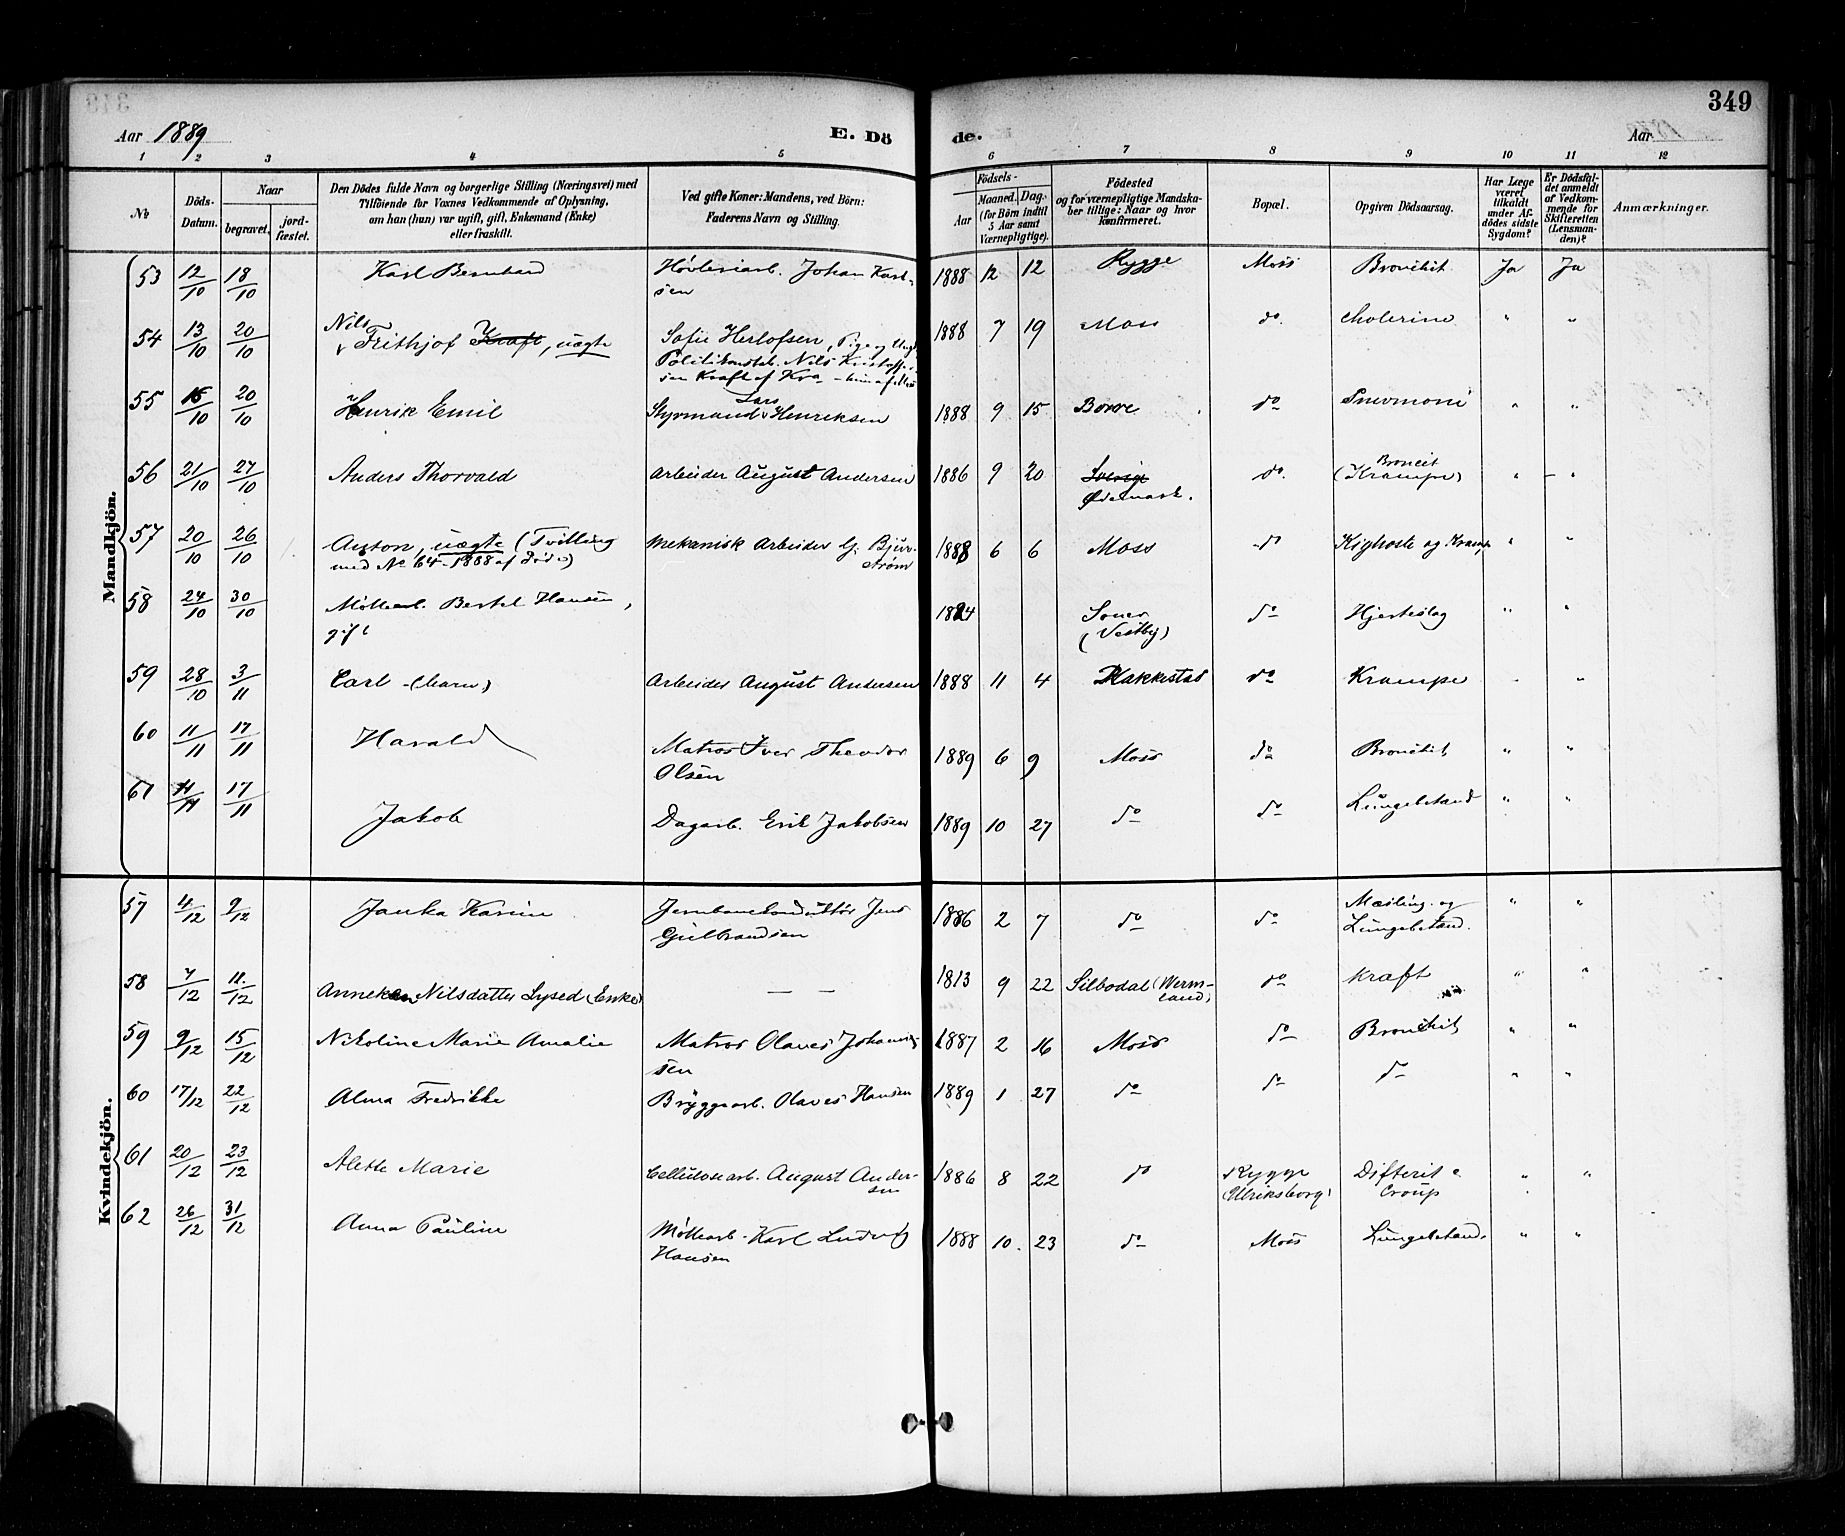 349
Aar 1889
E. Dö
de.
Aar
1 2 3 4 5 6 7 8 9 10 11 12
No
Döds-Datum.
Naar
begravet.
jord-fæstet.
Den Dödes fulde Navn og borgerlige Stilling (Næringsvei) med
Tilföiende for Voxnes Vedkommende af Oplysning,
om han (hun) var ugift, gift, Enkemand (Enke)
eller fraskilt.
Ved gifte Koner: Mandens, ved Börn:
Faderens Navn og Stilling.
Födsels-
Aar
Maaned. Dag.
(for Börn indtil
5 Aar samt
Værnepligtige).
Födested
og for værnepligtige Mandska-
ber tillige: Naar og hvor
konfirmeret.
Bopæl.
Opgiven Dödsaarsag.
Har Læge
været
tilkaldt
under Af-
dödes sidste
Sygdom?
Er Dödsfal-
det anmeldt
af Vedkom-
mende for
Skifteretten
(Lensman-
den)?
Anmærkninger.
Mandkjön.
53 12/10 18/10 Karl Bernhard Høvleriarb. Johan Karl-
sen 1888 12 12 Rygge Moss Bronchit Ja Ja
54 13/10 20/10 Nils
Frithjof Kraft, uægte Sofie Herlofsen, Pige og
Politikonstab. Nils Kristoffer-
sen Kraft af Kra 1888 7 19 Moss do. Cholerine " "
55 15/10 20/10 Henrik Emil Styrmand Lars Henriksen 1888 9 15 Borre do Pnevmoni " "
56 21/10 27/10 Anders Thorvald Arbeider August Andersen 1886 9 20 Sverige
Ødemark. do. Broncit
(Krampe) " "
57 20/10 26/10 Anton, uægte (Tvilling
med No 64 - 1888 af døde) Mekanisk Arbeider G. Bjur-
strøm 1888 6 6 Moss do Kighoste og Krampe " "
58 24/10 30/10 Møllearb. Bertel Hansen,
gift 1824 Soner
(Vestby) do Hjerteslag " "
59 28/10 3/11 Carl (barn) Arbeider August Andersen 1888 11 4 Rakkestad do Krampe " "
60 11/11 17/11 Harald Matros Iver Theodor
Olsen 1889 6 9 Moss do Bronchit " "
61 11/11 17/11 Jakob Dagarb. Erik Jakobsen 1889 10 27 do do Lungebetænd " "
Kvindekjön.
57 4/12 9/12 Janka Karine Jernbanekonduktør Jens
Gulbrandsen 1886 2 7 do do Mæsling. og
Lungebetænd. " "
58 7/12 11/12 Anneken Nilsdatter Lysed (Enke) — — 1813 9 22 Silbodal (Werm-
land) do Kræft " "
59 9/12 15/12 Nikoline Marie Amalie Matros Olaves Johannes-
sen 1887 2 16 Moss do Bronchit " "
60 17/12 22/12 Alma Fredrikke Bryggearb. Olaves Hansen 1889 1 27 do do do " "
61 20/12 23/12 Alette Marie Cellulosearb. August Ander-
sen 1886 8 22 do Rygge
(Ulriksborg) Difterit o
Croup " "
62 26/12 31/12 Anna Pauline Møllearb. Karl Ludvig
Hansen 1888 10 23 do Moss Lungebetænd. " "